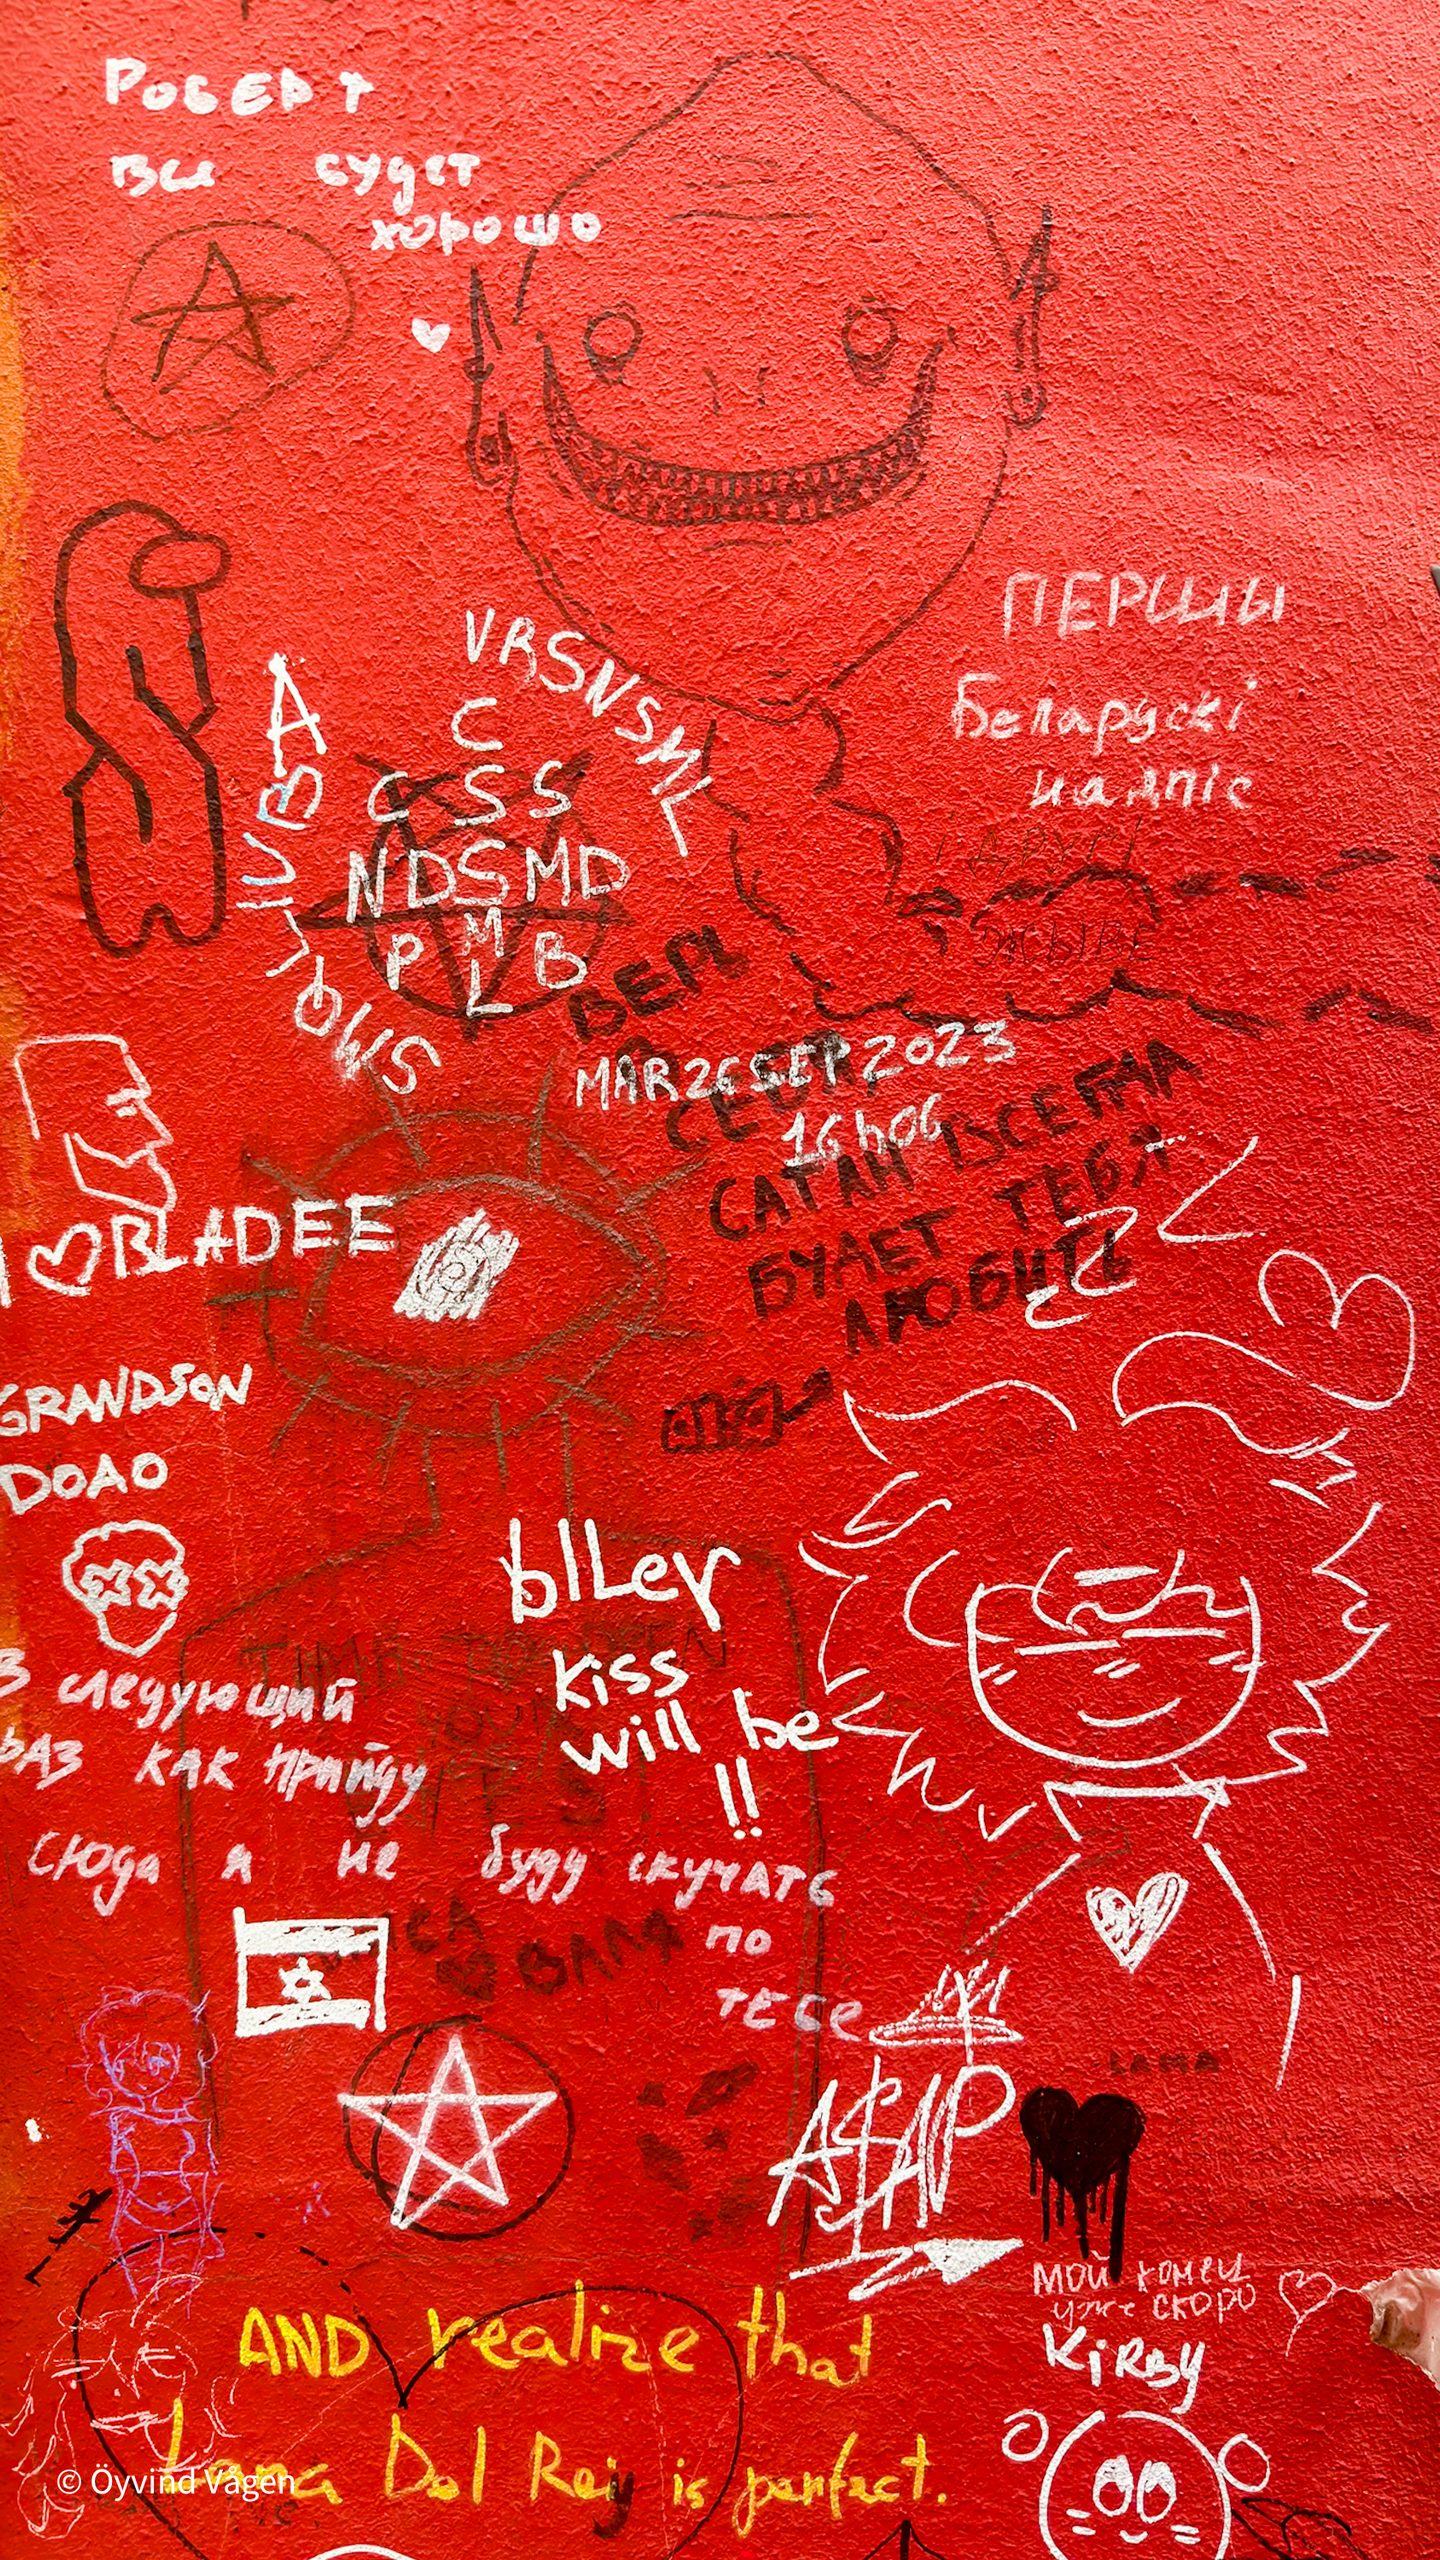 Роберт
Все будет
хорошо
ПЕРШЫ
Беларускі
надпіс
VRSNSMV
SMQLIVB
C
C S S
NDSMD
P M B
L
MAR26SEP2023
16h06
ВЕРЬ
В СЕБЯ,
САТАН ВСЕГДА
БУДЕТ ТЕБЯ
ЛЮБИТЬ
I ♡ BLADEE
GRANDSON
DOAO
blLey
kiss
will be
!!
В следующий
РАЗ КАК прийду
сюда я не буду скучать
по
тебе
ВАЛЯ
A$AP
МОЙ конец
уже скоро
KiRBY
AND realize that
Lana Del Rey is perfect.
© Öyvind Vågen